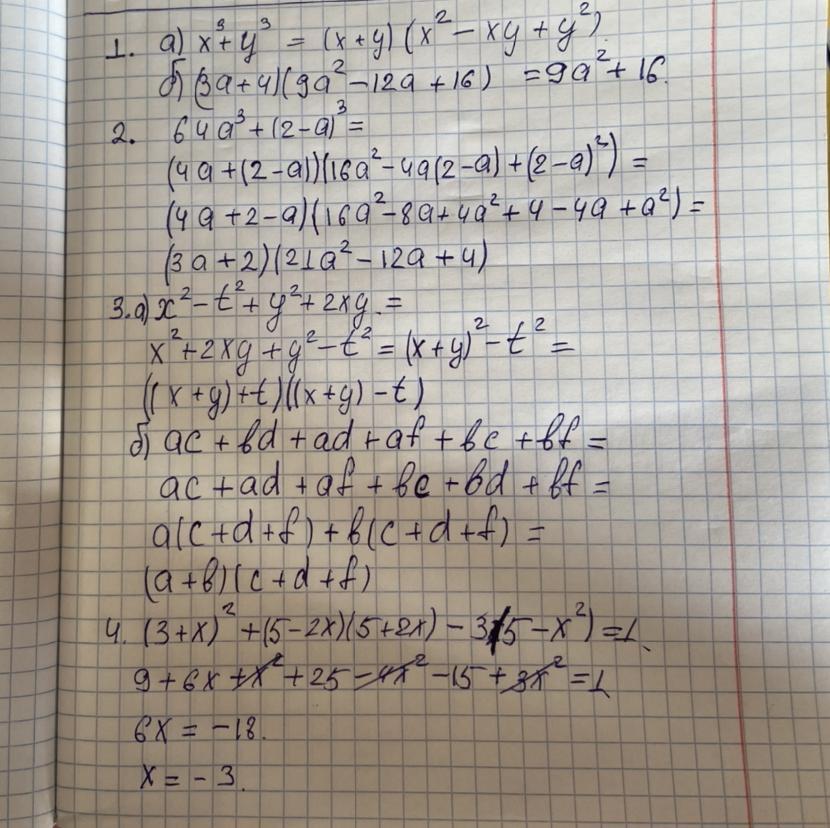 1. а) x³ + y³ = (x + y) (x² - xy + y²)
б) (3a + 4)(9a² - 12a + 16) = 9a² + 16.
2. 64a³ + (2 - a)³ =
(4a + (2 - a))(16a² - 4a(2 - a) + (2 - a)²) =
(4a + 2 - a)(16a² - 8a + 4a² + 4 - 4a + a²) =
(3a + 2)(21a² - 12a + 4)
3. а) x² - t² + y² + 2xy. =
x² + 2xy + y² - t² = (x + y)² - t² =
((x + y) + t)((x + y) - t)
б) ac + bd + ad + af + bc + bf =
ac + ad + af + bc + bd + bf =
a(c + d + f) + b(c + d + f) =
(a + b)(c + d + f)
4. (3 + x)² + (5 - 2x)(5 + 2x) - 3(5 - x²) = 1.
9 + 6x + x² + 25 - 4x² - 15 + 3x² = 1
6x = -18.
x = - 3.